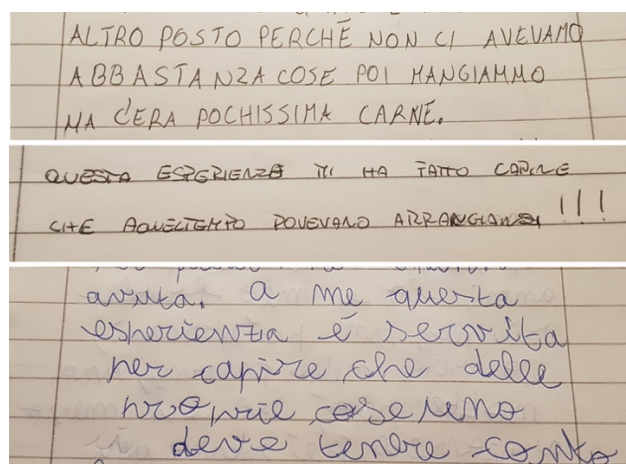 ALTRO POSTO PERCHÉ NON CI AVEVAMO
ABBASTANZA COSE POI MANGIAMMO
MA C'ERA POCHISSIMA CARNE.
QUESTA ESPERIENZA MI HA FATTO CAPIRE
CHE AQUELTEMPO DOVEVANO ARRANGIARSI !!!
avuta. a me questa
esperienza è servita
per capire che delle
proprie cose uno
deve tenere conto